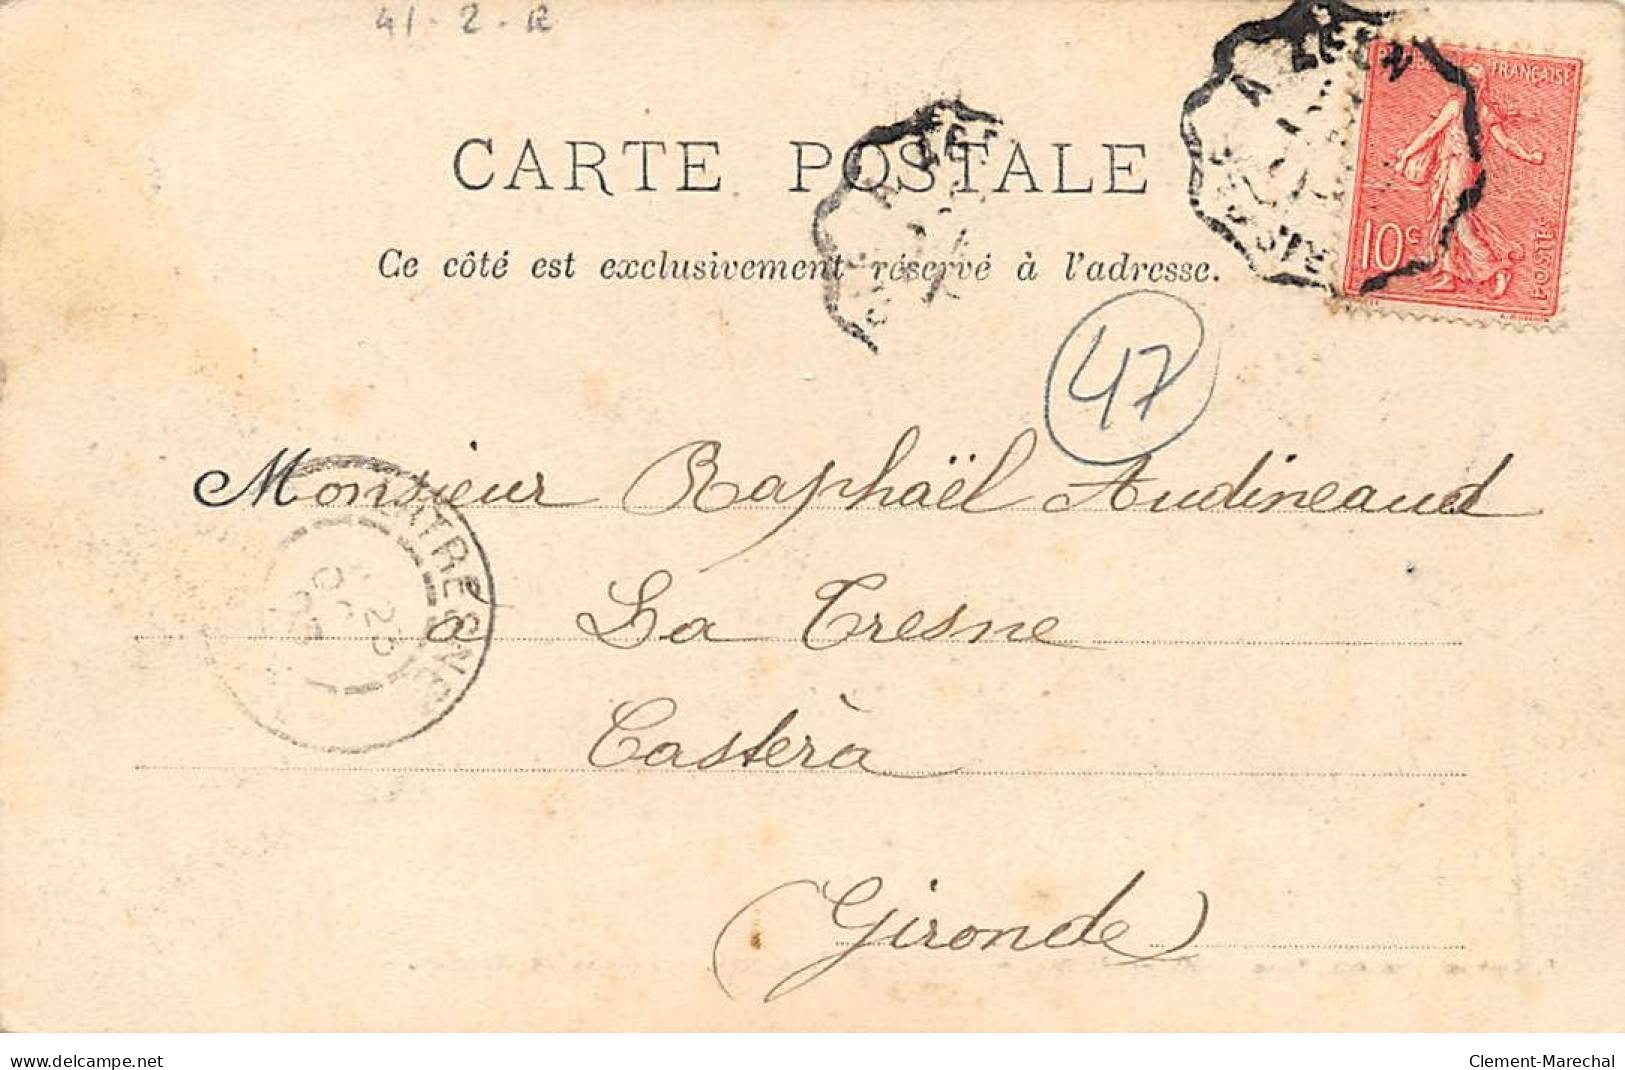 41-2-R
CARTE POSTALE
Ce côté est exclusivement réservé à l'adresse.
RÉPUBLIQUE FRANÇAISE
10c
POSTES
A AGEN
47
Monsieur Raphaël Audineaud
à La Tresne
Castèra
(Gironde)
LATRESNE
23
www.delcampe.net
Clement-Marechal